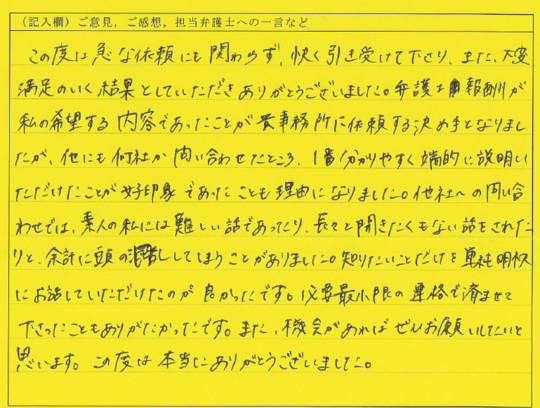 （記入欄）ご意見，ご感想，担当弁護士への一言など
この度は急な依頼にも関わらず、快く引き受けて下さり、また、大変
満足のいく結果としていただきありがとうございました。弁護士報酬が
私の希望する内容であったことが貴事務所に依頼する決め手となりまし
たが、他にも何社か問い合わせたところ、1番分かりやすく端的に説明い
ただけたことが好印象であったことも理由になりました。他社への問い合
わせでは、素人の私には難しい話であったり、長々と聞きたくもない話をされた
りと、余計に頭の混乱してしまうことがありました。知りたいことだけを単純明快
にお話していただけたのが良かったです。必要最小限の連絡で済ませて
下さったこともありがたかったです。また、機会があればぜひお願いしたいと
思います。この度は本当にありがとうございました。